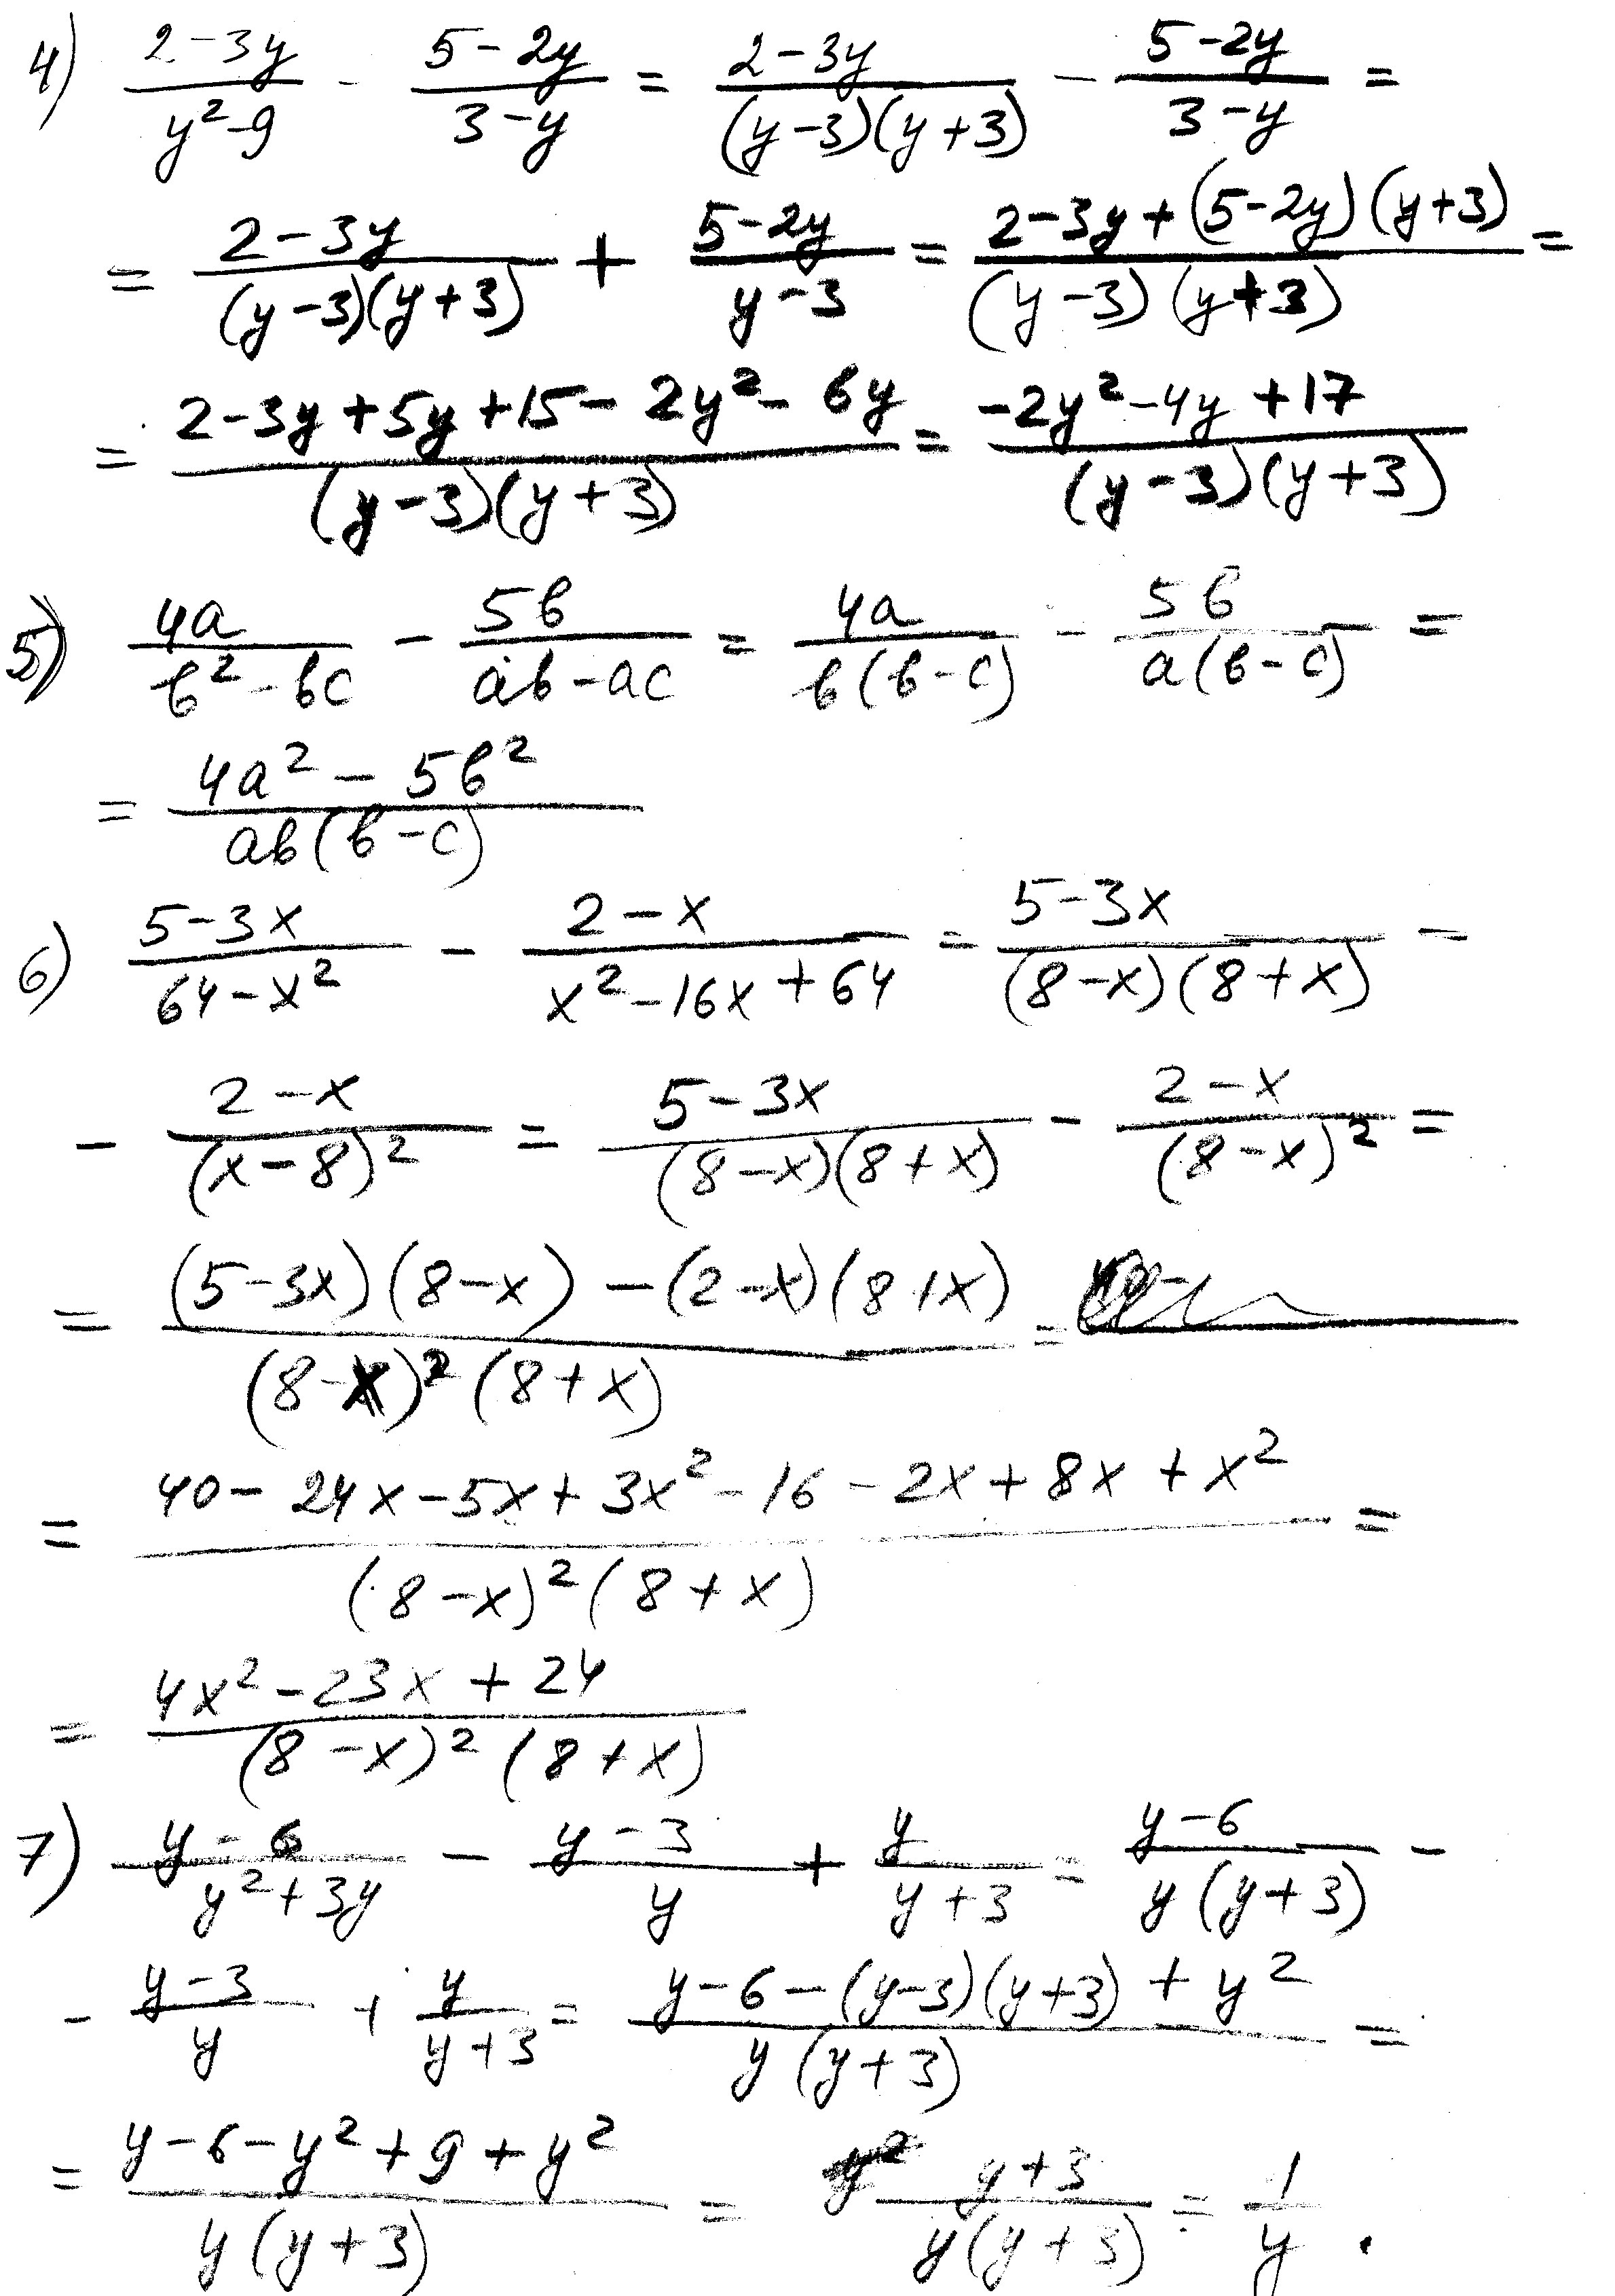 4) (2-3y)/(y²-9) - (5-2y)/(3-y) = (2-3y)/((y-3)(y+3)) - (5-2y)/(3-y) =
= (2-3y)/((y-3)(y+3)) + (5-2y)/(y-3) = (2-3y+(5-2y)(y+3))/((y-3)(y+3)) =
= (2-3y+5y+15-2y²-6y)/((y-3)(y+3)) = (-2y²-4y+17)/((y-3)(y+3))
5) 4a/(b²-bc) - 5b/(ab-ac) = 4a/(b(b-c)) - 5b/(a(b-c)) =
= (4a²-5b²)/(ab(b-c))
6) (5-3x)/(64-x²) - (2-x)/(x²-16x+64) = (5-3x)/((8-x)(8+x)) -
- (2-x)/(x-8)² = (5-3x)/((8-x)(8+x)) - (2-x)/(8-x)² =
= ((5-3x)(8-x)-(2-x)(8+x))/((8-x)²(8+x)) =
= (40-24x-5x+3x²-16-2x+8x+x²)/((8-x)²(8+x)) =
= (4x²-23x+24)/((8-x)²(8+x))
7) (y-6)/(y²+3y) - (y-3)/y + y/(y+3) = (y-6)/(y(y+3)) -
- (y-3)/y + y/(y+3) = (y-6-(y-3)(y+3)+y²)/(y(y+3)) =
= (y-6-y²+9+y²)/(y(y+3)) = (y+3)/(y(y+3)) = 1/y.